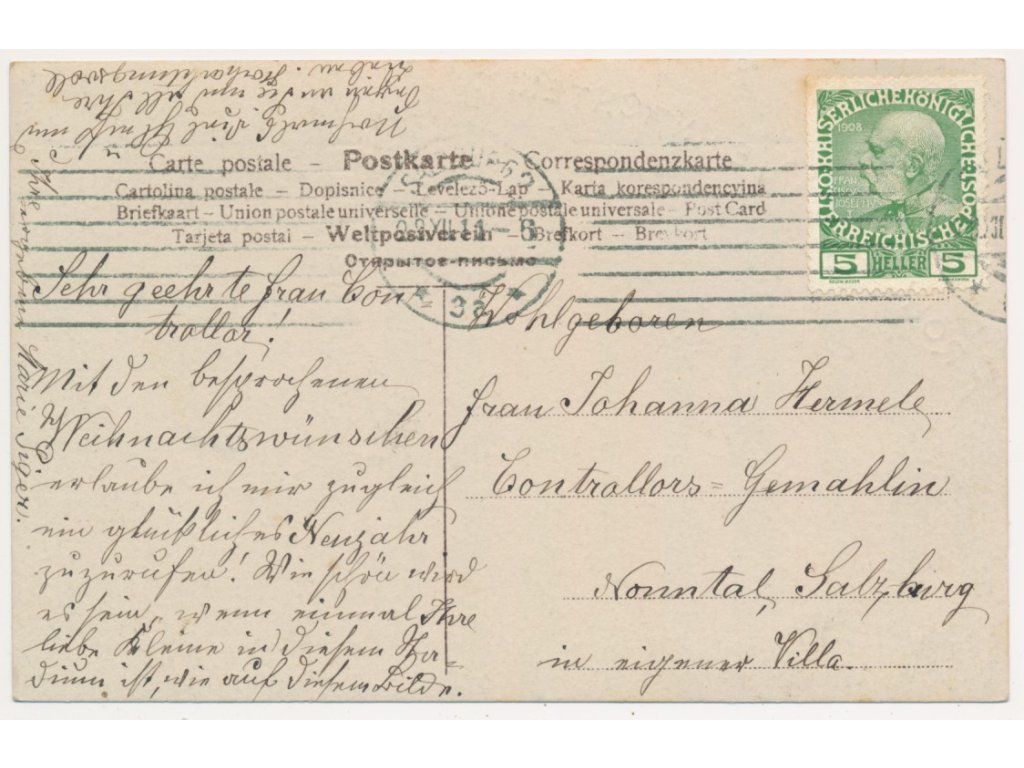 Carte postale – Postkarte – Correspondenzkarte
Cartolina postale – Dopisnice – Levelező-Lap – Karta korespondencyjna
Briefkaart – Union postale universelle – Unione postale universale – Post Card
Tarjeta postal – Weltpostverein – Brefkort – Brevkort
Открытое письмо
KAISERLICHE KÖNIGLICHE ÖSTERREICHISCHE POST
1908
5 HELLER 5
XII 11 – 6
3a
Sehr geehrte Frau Con
trollor!
Mit den besprochenen
Weihnachtswünschen
erlaube ich mir zugleich
ein glückliches Neujahr
zuzurufen! Wie schön wird
es sein, wenn einmal Ihre
liebe Kleine in diesem Sta-
dium ist, wie auf diesem Bilde.
Nochmals viel Glück
Sie und all Ihre
Lieben. Hochachtungsvoll
Marie
Wohlgeboren
Frau Johanna Hermele
Controllors=Gemahlin
Nonntal, Salzburg
in eigener Villa.